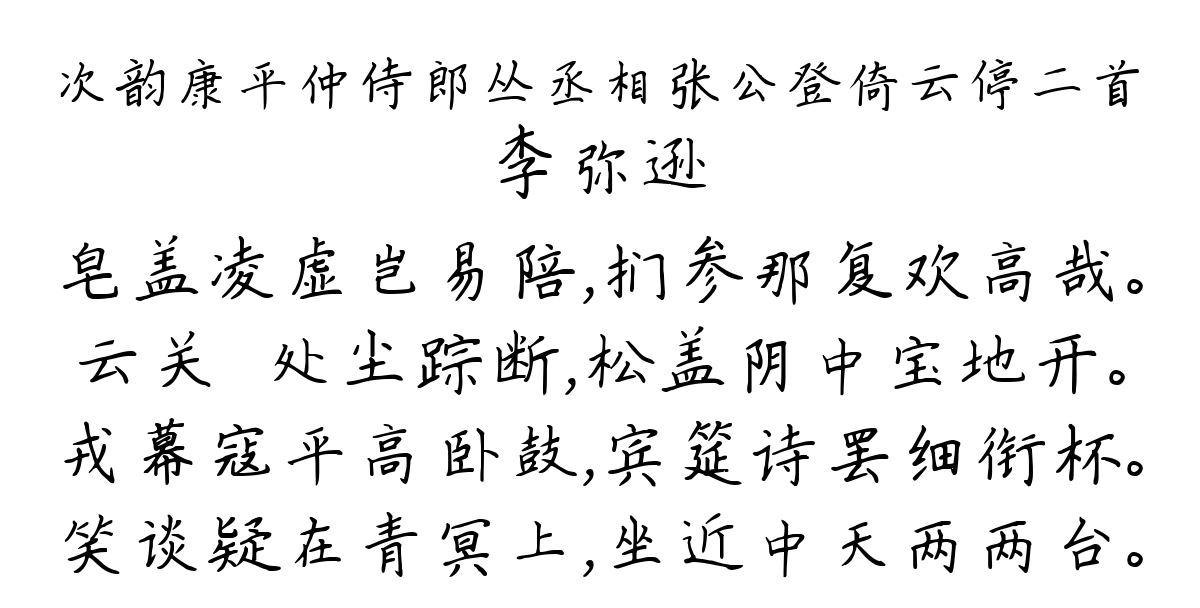 次韵康平仲侍郎丛丞相张公登倚云停二首
李弥逊
皂盖凌虚岂易陪,扪参那复欢高哉。
云关 处尘踪断,松盖阴中宝地开。
戎幕寇平高卧鼓,宾筵诗罢细衔杯。
笑谈疑在青冥上,坐近中天两两台。